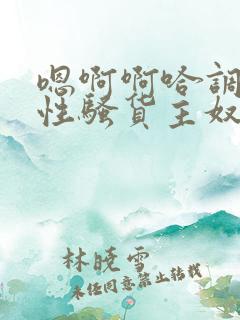 嗯啊啊哈调
性骚货主奴
林晓雪
未经同意禁止转载